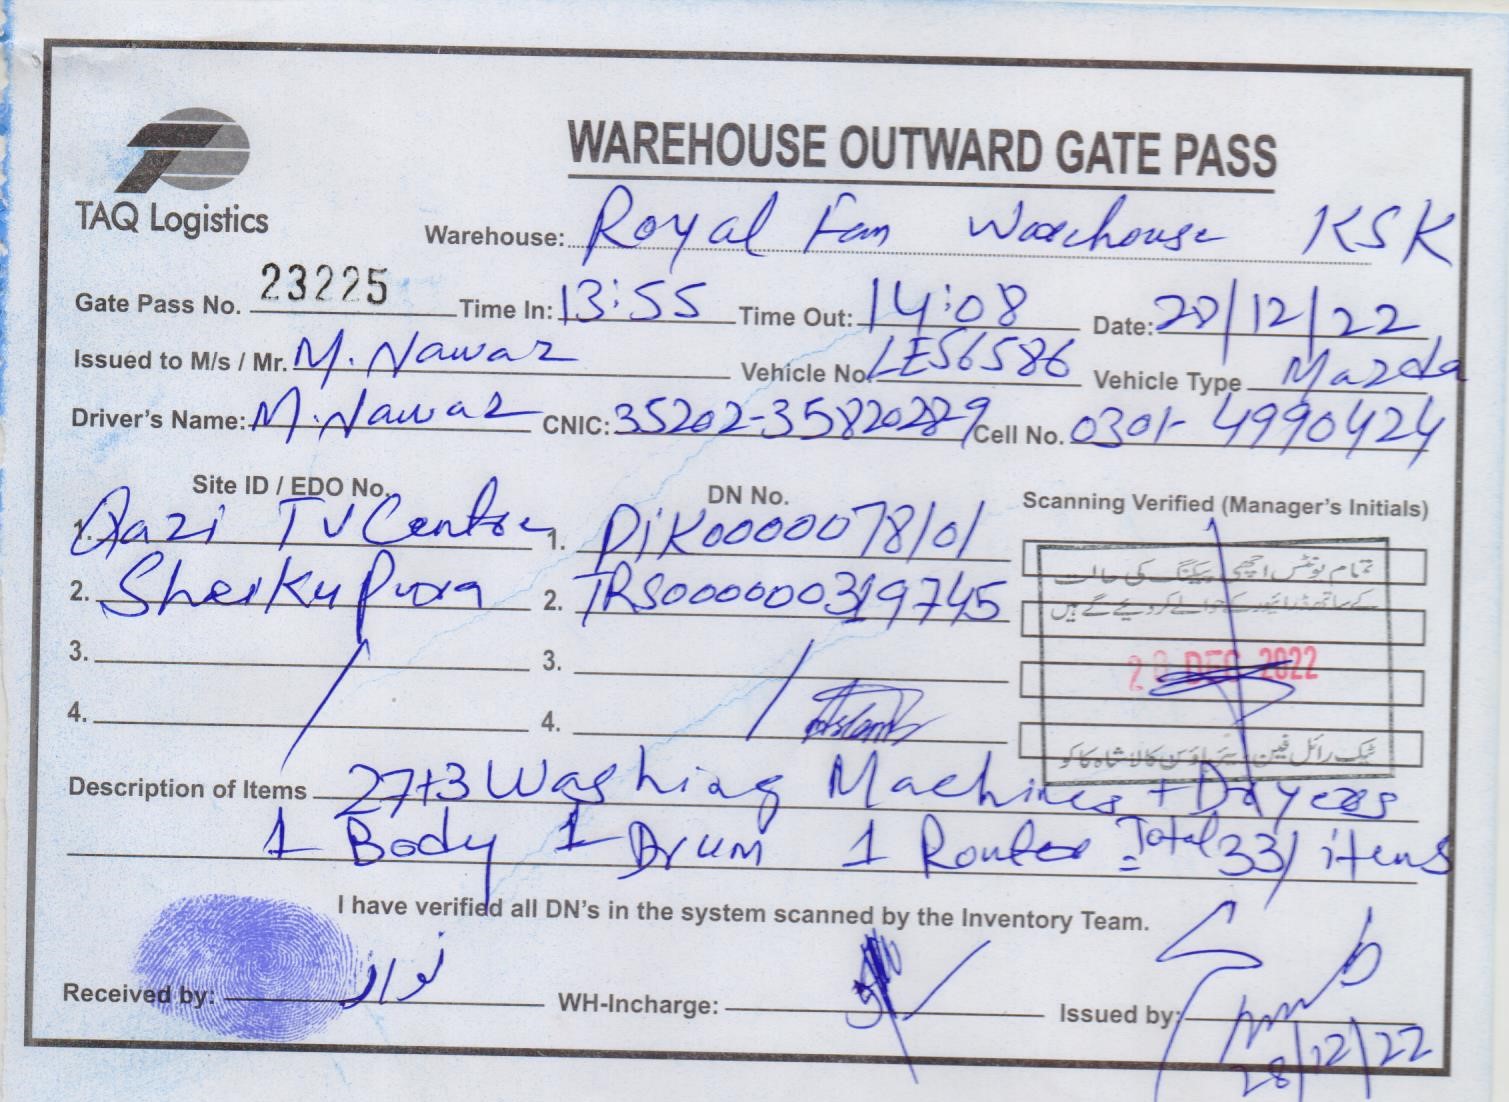 WAREHOUSE OUTWARD GATE PASS
TAQ Logistics
Warehouse: Royal Fan Warehouse KSK
Gate Pass No. 23225 Time In: 13:55 Time Out: 14:08 Date: 28/12/22
Issued to M/s / Mr. M. Nawaz Vehicle No. LES6586 Vehicle Type Mazda
Driver's Name: M. Nawaz CNIC: 35202-35820289 Cell No. 0301-4990424
Site ID / EDO No. DN No. Scanning Verified (Manager's Initials)
1. Qazi TV Centre 1. DIK0000078/01
2. Sheikupura 2. TRS0000000319745
تمام یونٹس اچھی پیکنگ کی حالت
کے ساتھ ڈرائیور کے حوالے کر دیئے گئے ہیں
3. 3.
28 DEC 2022
4. 4.
ٹیک رائل فین ویئر ہاؤس کالا شاہ کاکو
Description of Items 27+3 Washing Machines + Dryers
1 Body 1 Drum 1 Router = Total 33/ items
I have verified all DN's in the system scanned by the Inventory Team.
Received by: نواز WH-Incharge: Issued by:
28/12/22